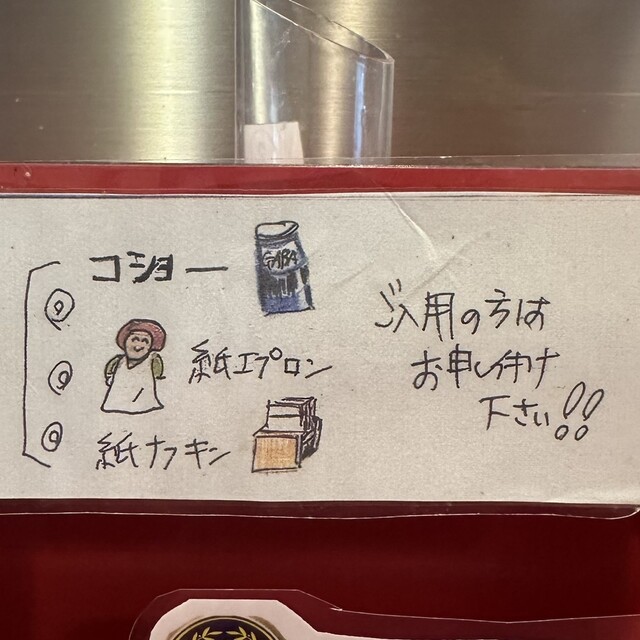 コショー
GABAN
紙エプロン
紙ナフキン
ご入用の方は
お申し付け
下さい!!